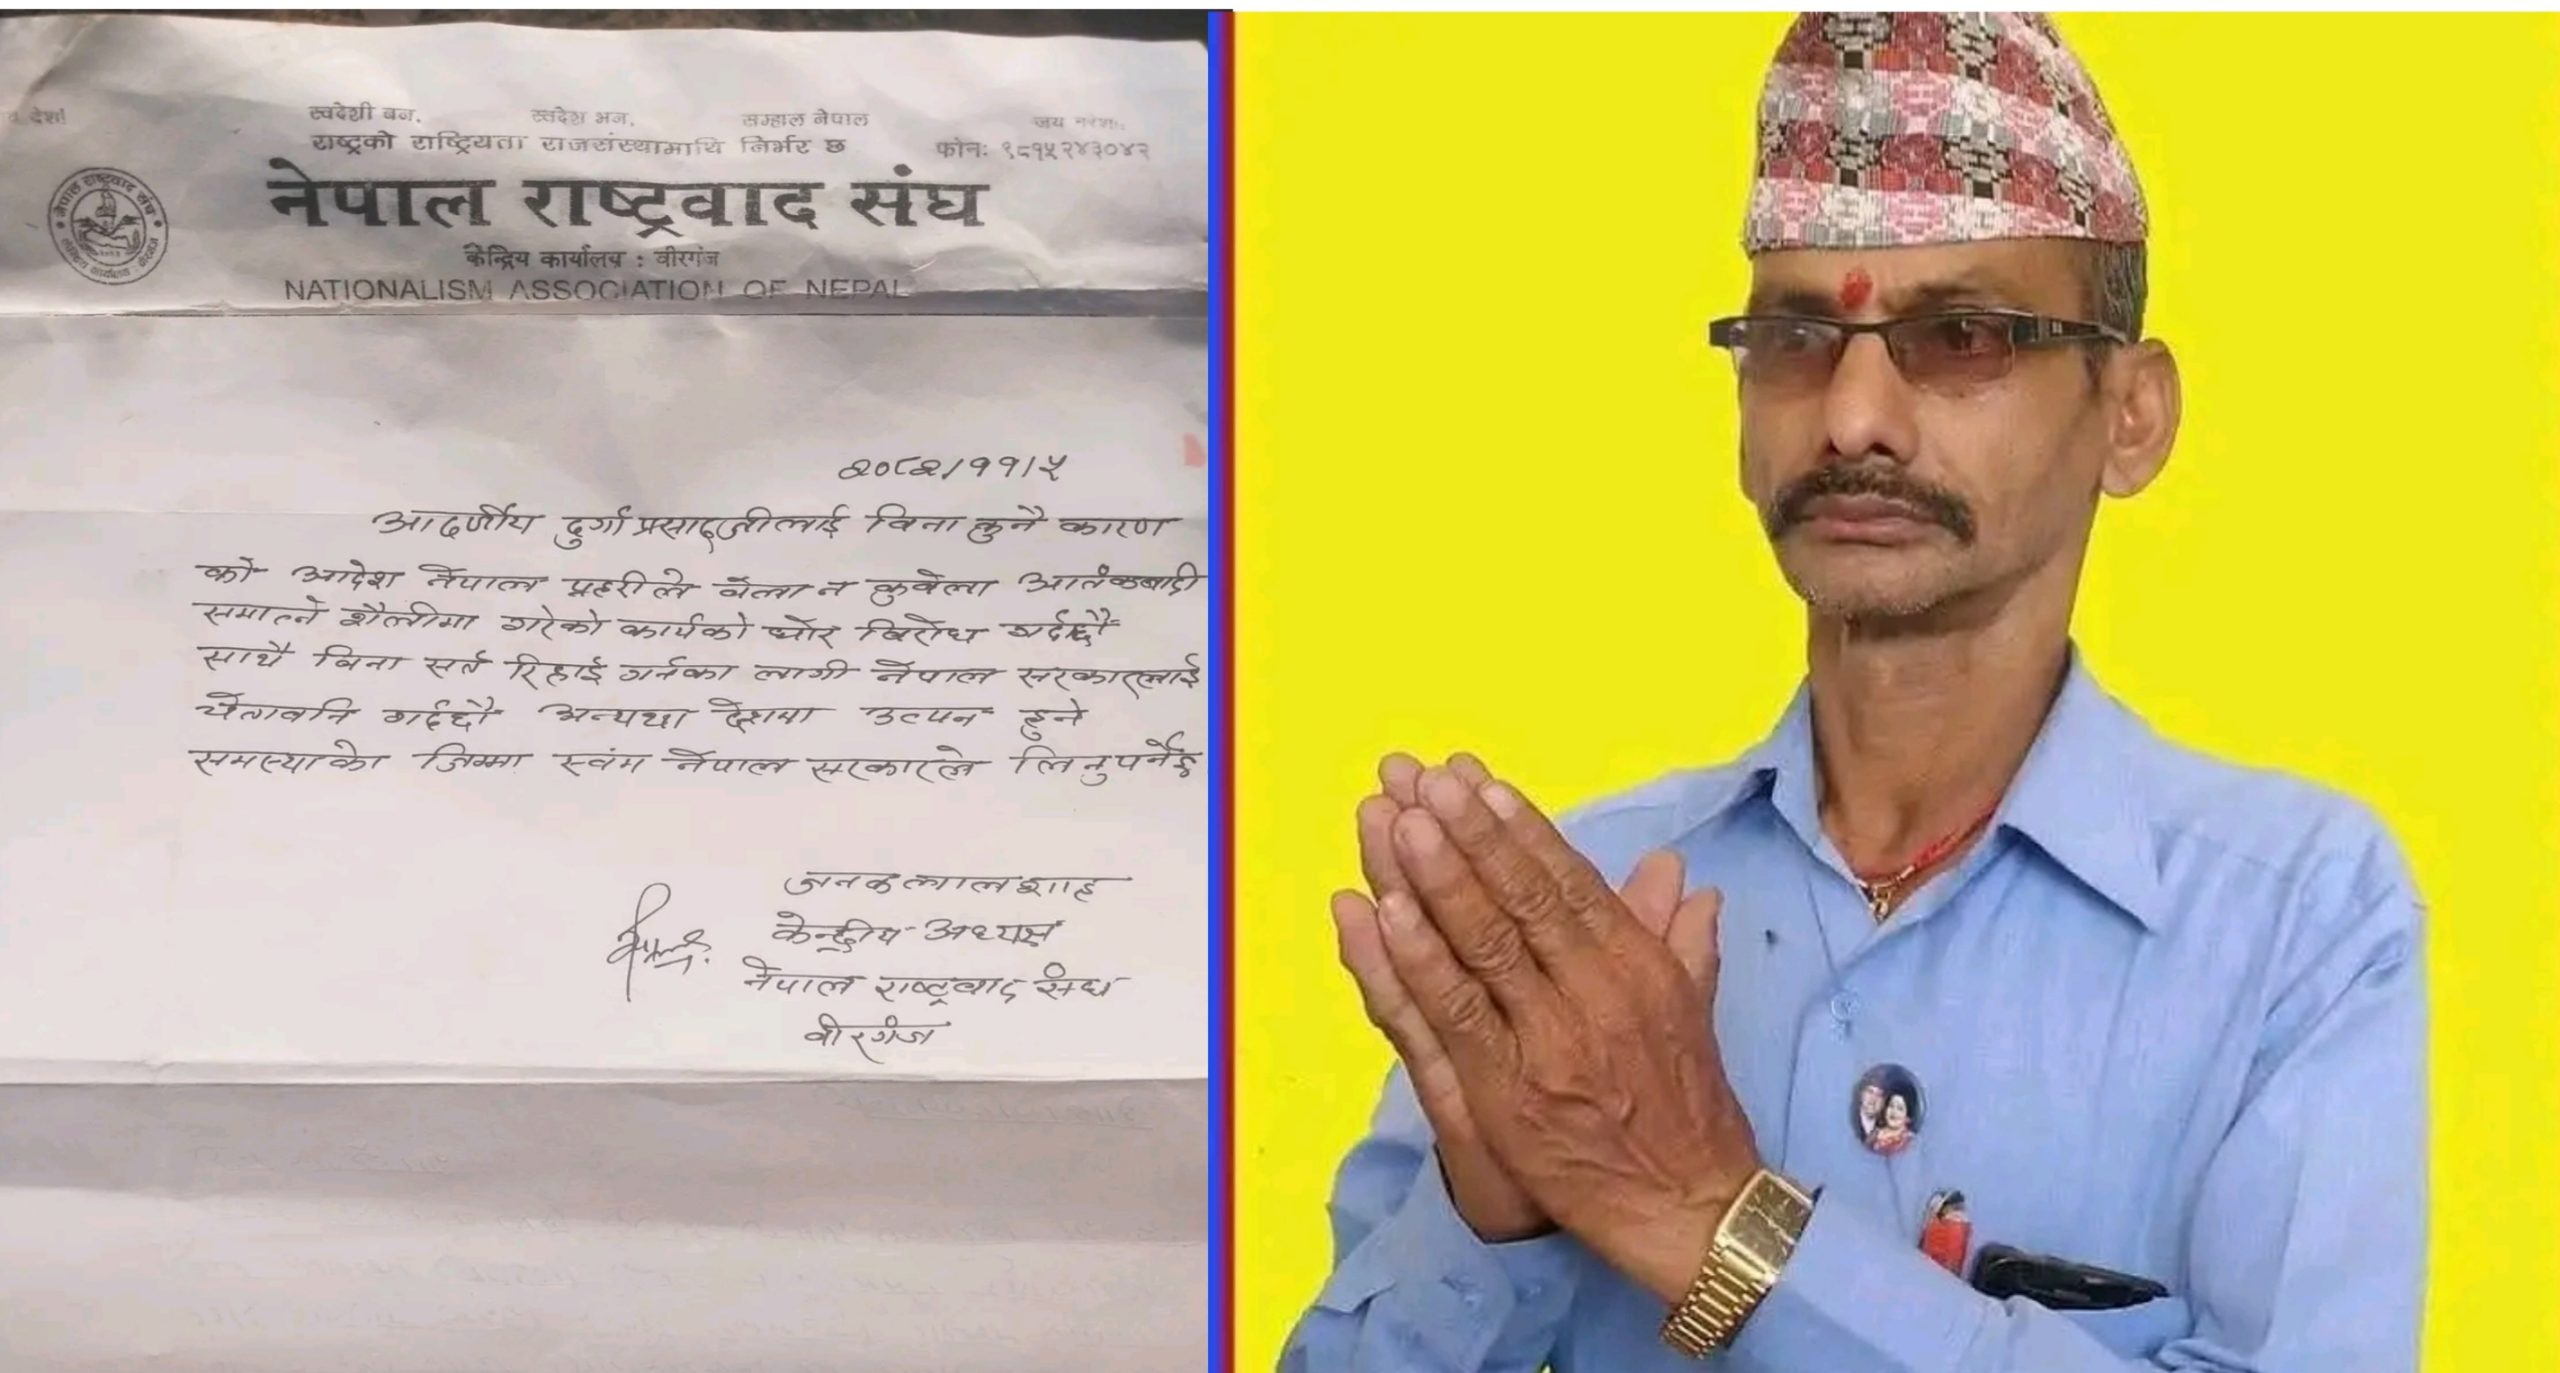 देश!
स्वदेशी बन, स्वदेश भन, सम्हाल नेपाल जय नरेश!
राष्ट्रको राष्ट्रियता राजसंस्थामाथि निर्भर छ फोन: ९८१५२४३०४२
नेपाल राष्ट्रवाद संघ
केन्द्रिय कार्यालय : वीरगंज
NATIONALISM ASSOCIATION OF NEPAL
२०८२/११/५
आदर्णीय दुर्गा प्रसाद जीलाई विना कुनै कारण
को आदेश नेपाल प्रहरीले वेला न कुवेला आतंकबादी
समात्ने शैलीमा गरेको कार्यको घोर विरोध गर्दछौं
साथै विना सर्त रिहाई गर्नका लागी नेपाल सरकारलाई
चेतावनि गर्दछौ अन्यथा देशमा उत्पन हुने
समस्याको जिम्मा स्वंम नेपाल सरकारले लिनुपर्नेछ
जनक लाल शाह
केन्द्रीय अध्यक्ष
नेपाल राष्ट्रवाद संघ
वीरगंज